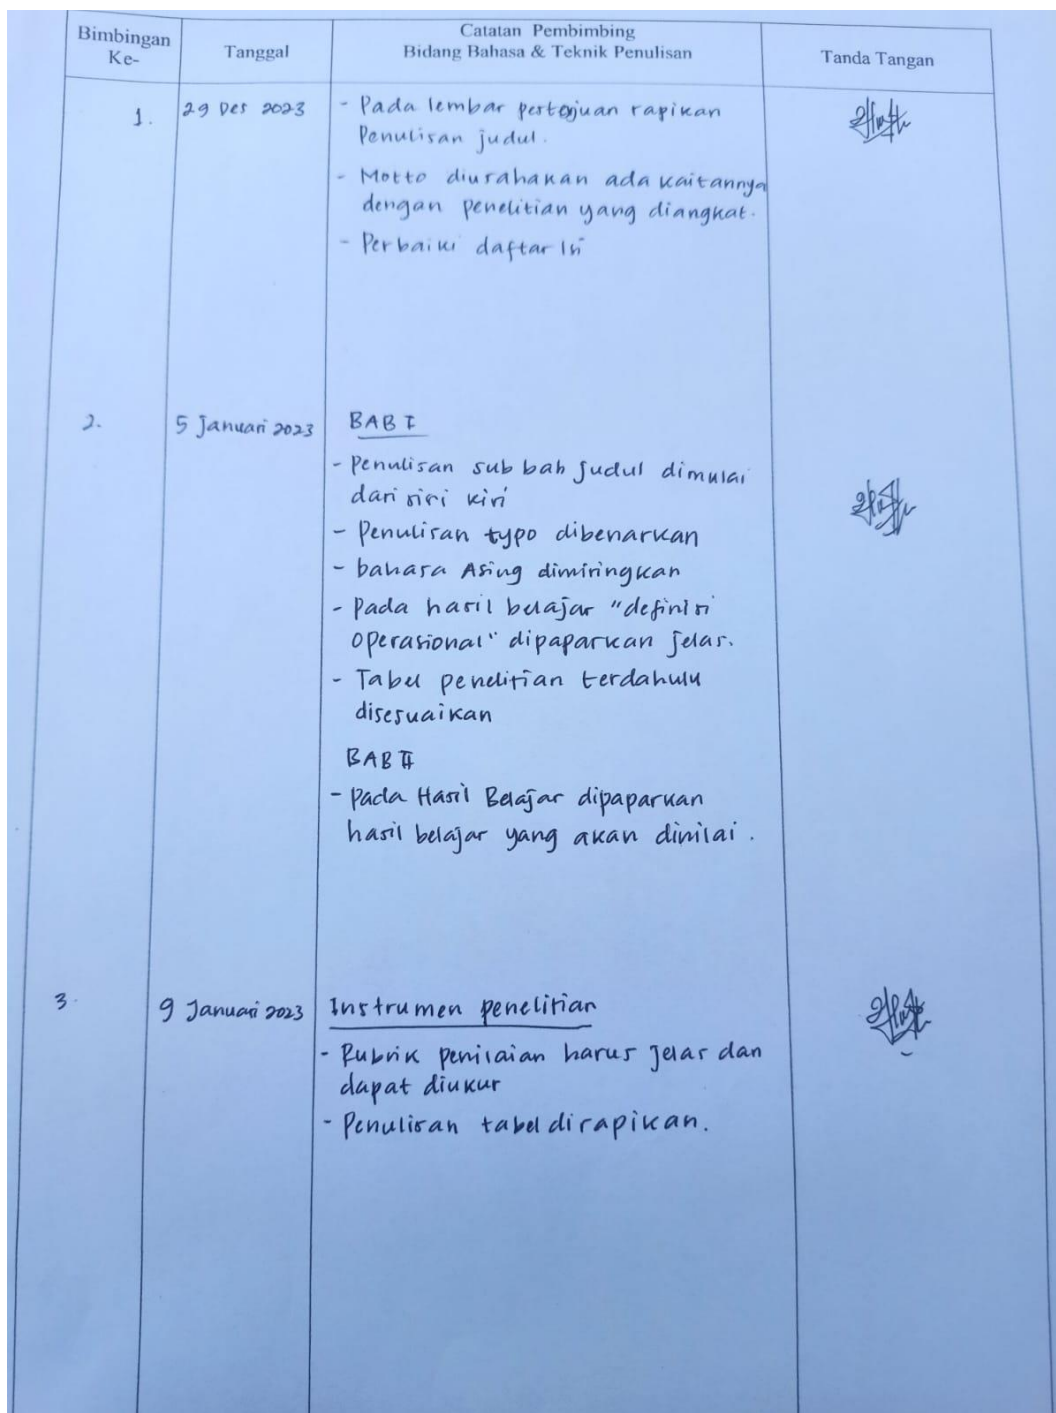 Bimbingan
Ke-
Tanggal
Catatan Pembimbing
Bidang Bahasa & Teknik Penulisan
Tanda Tangan
1.
29 Des 2023
- Pada lembar persetujuan rapikan
Penulisan judul.
- Motto diusahakan ada kaitannya
dengan penelitian yang diangkat.
- Perbaiki daftar Isi
2.
5 Januari 2023
BAB I
- Penulisan sub bab judul dimulai
dari sisi kiri
- Penulisan typo dibenarkan
- bahasa Asing dimiringkan
- Pada hasil belajar "definisi
operasional" dipaparkan jelas.
- Tabel penelitian terdahulu
disesuaikan
BAB II
- Pada Hasil Belajar dipaparkan
hasil belajar yang akan dinilai.
3.
9 Januari 2023
Instrumen penelitian
- Rubrik penilaian harus jelas dan
dapat diukur
- Penulisan tabel dirapikan.